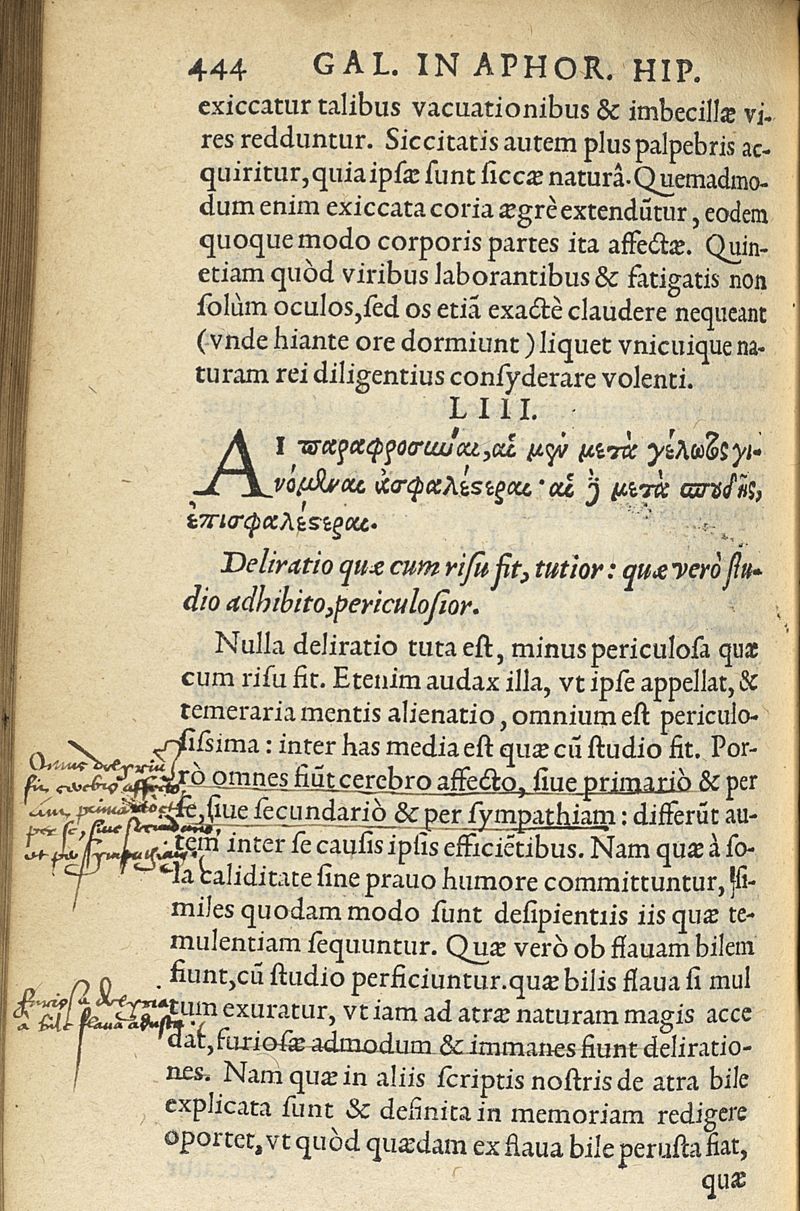 444 GAL. IN APHOR. HIP.
exiccatur talibus vacuationibus & imbecillæ vi-
res redduntur. Siccitatis autem plus palpebris ac-
quiritur, quia ipſæ ſunt ſiccæ naturâ. Quemadmo-
dum enim exiccata coria ægrè extendũtur, eodem
quoque modo corporis partes ita affectæ. Quin-
etiam quòd viribus laborantibus & fatigatis non
ſolùm oculos, ſed os etiã exactè claudere nequeant
(vnde hiante ore dormiunt) liquet vnicuique na-
turam rei diligentius conſyderare volenti.
LIII.
ΑΙ παραφροσύναι, αἱ μὲν μετὰ γέλωτος γι-
νόμεναι ἀσφαλέστεραι· αἱ δὲ μετὰ σπουδῆς,
ἐπισφαλέστεραι.
Deliratio quæ cum riſu fit, tutior: quæ verò ſtu-
dio adhibito, periculoſior.
Nulla deliratio tuta eſt, minus periculoſa quæ
cum riſu fit. Etenim audax illa, vt ipſe appellat, &
temeraria mentis alienatio, omnium eſt periculo-
ſiſsima: inter has media eſt quæ cũ ſtudio fit. Por-
rò omnes fiũt cerebro affecto, ſiue primariò & per
ſe, ſiue ſecundariò & per ſympathiam: differũt au-
tem inter ſe cauſis ipſis efficiẽtibus. Nam quæ à ſo-
la caliditate ſine prauo humore committuntur, ſi-
miles quodam modo ſunt deſipientiis iis quæ te-
mulentiam ſequuntur. Quæ verò ob flauam bilem
fiunt, cũ ſtudio perficiuntur. quæ bilis flaua ſi mul
tum exuratur, vt iam ad atræ naturam magis acce
dat, furioſæ admodum & immanes fiunt deliratio-
nes. Nam quæ in aliis ſcriptis noſtris de atra bile
explicata ſunt & definita in memoriam redigere
oportet, vt quòd quædam ex flaua bile peruſta fiat,
quæ
Omne delyriũ
fit cerebro affecto,
primario et
per se, siue secundario,
et per sympathiam.
furiosa delyria
a bile flaua adusta.